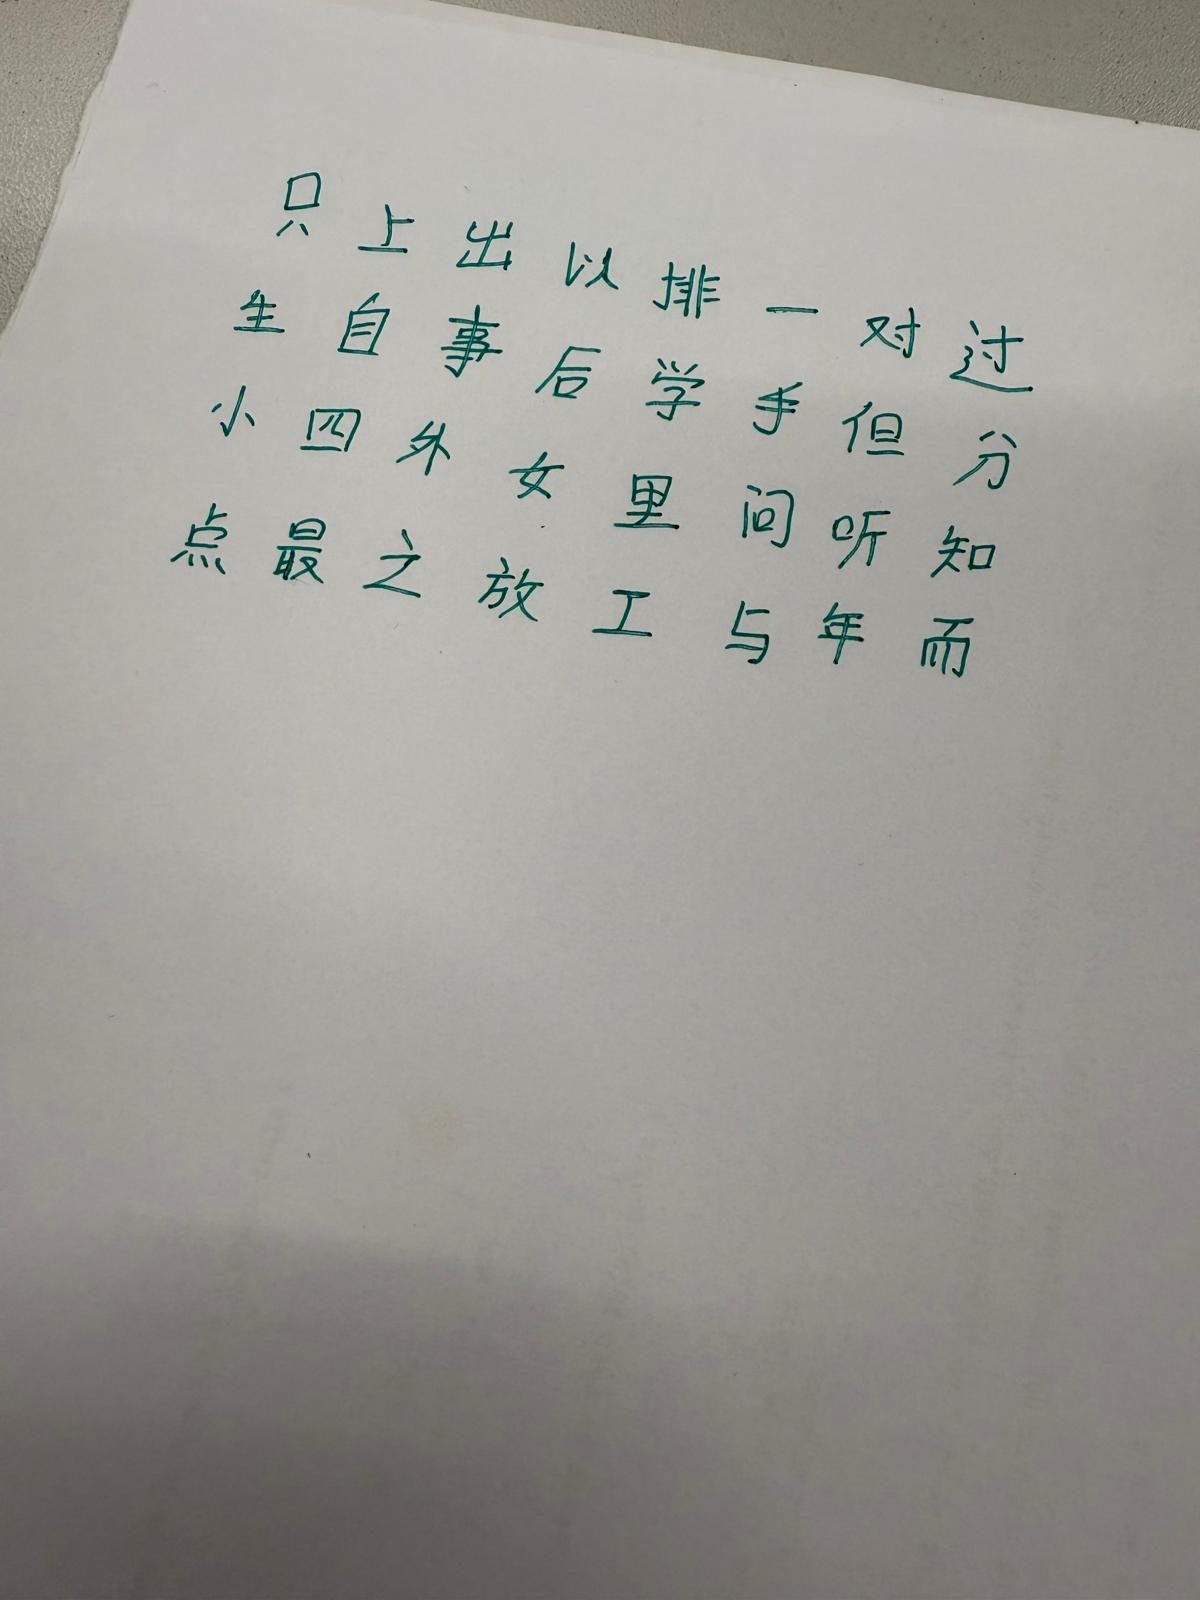 只上出以排一对过
生自事后学手但分
小四外女里问听知
点最之放工与年而